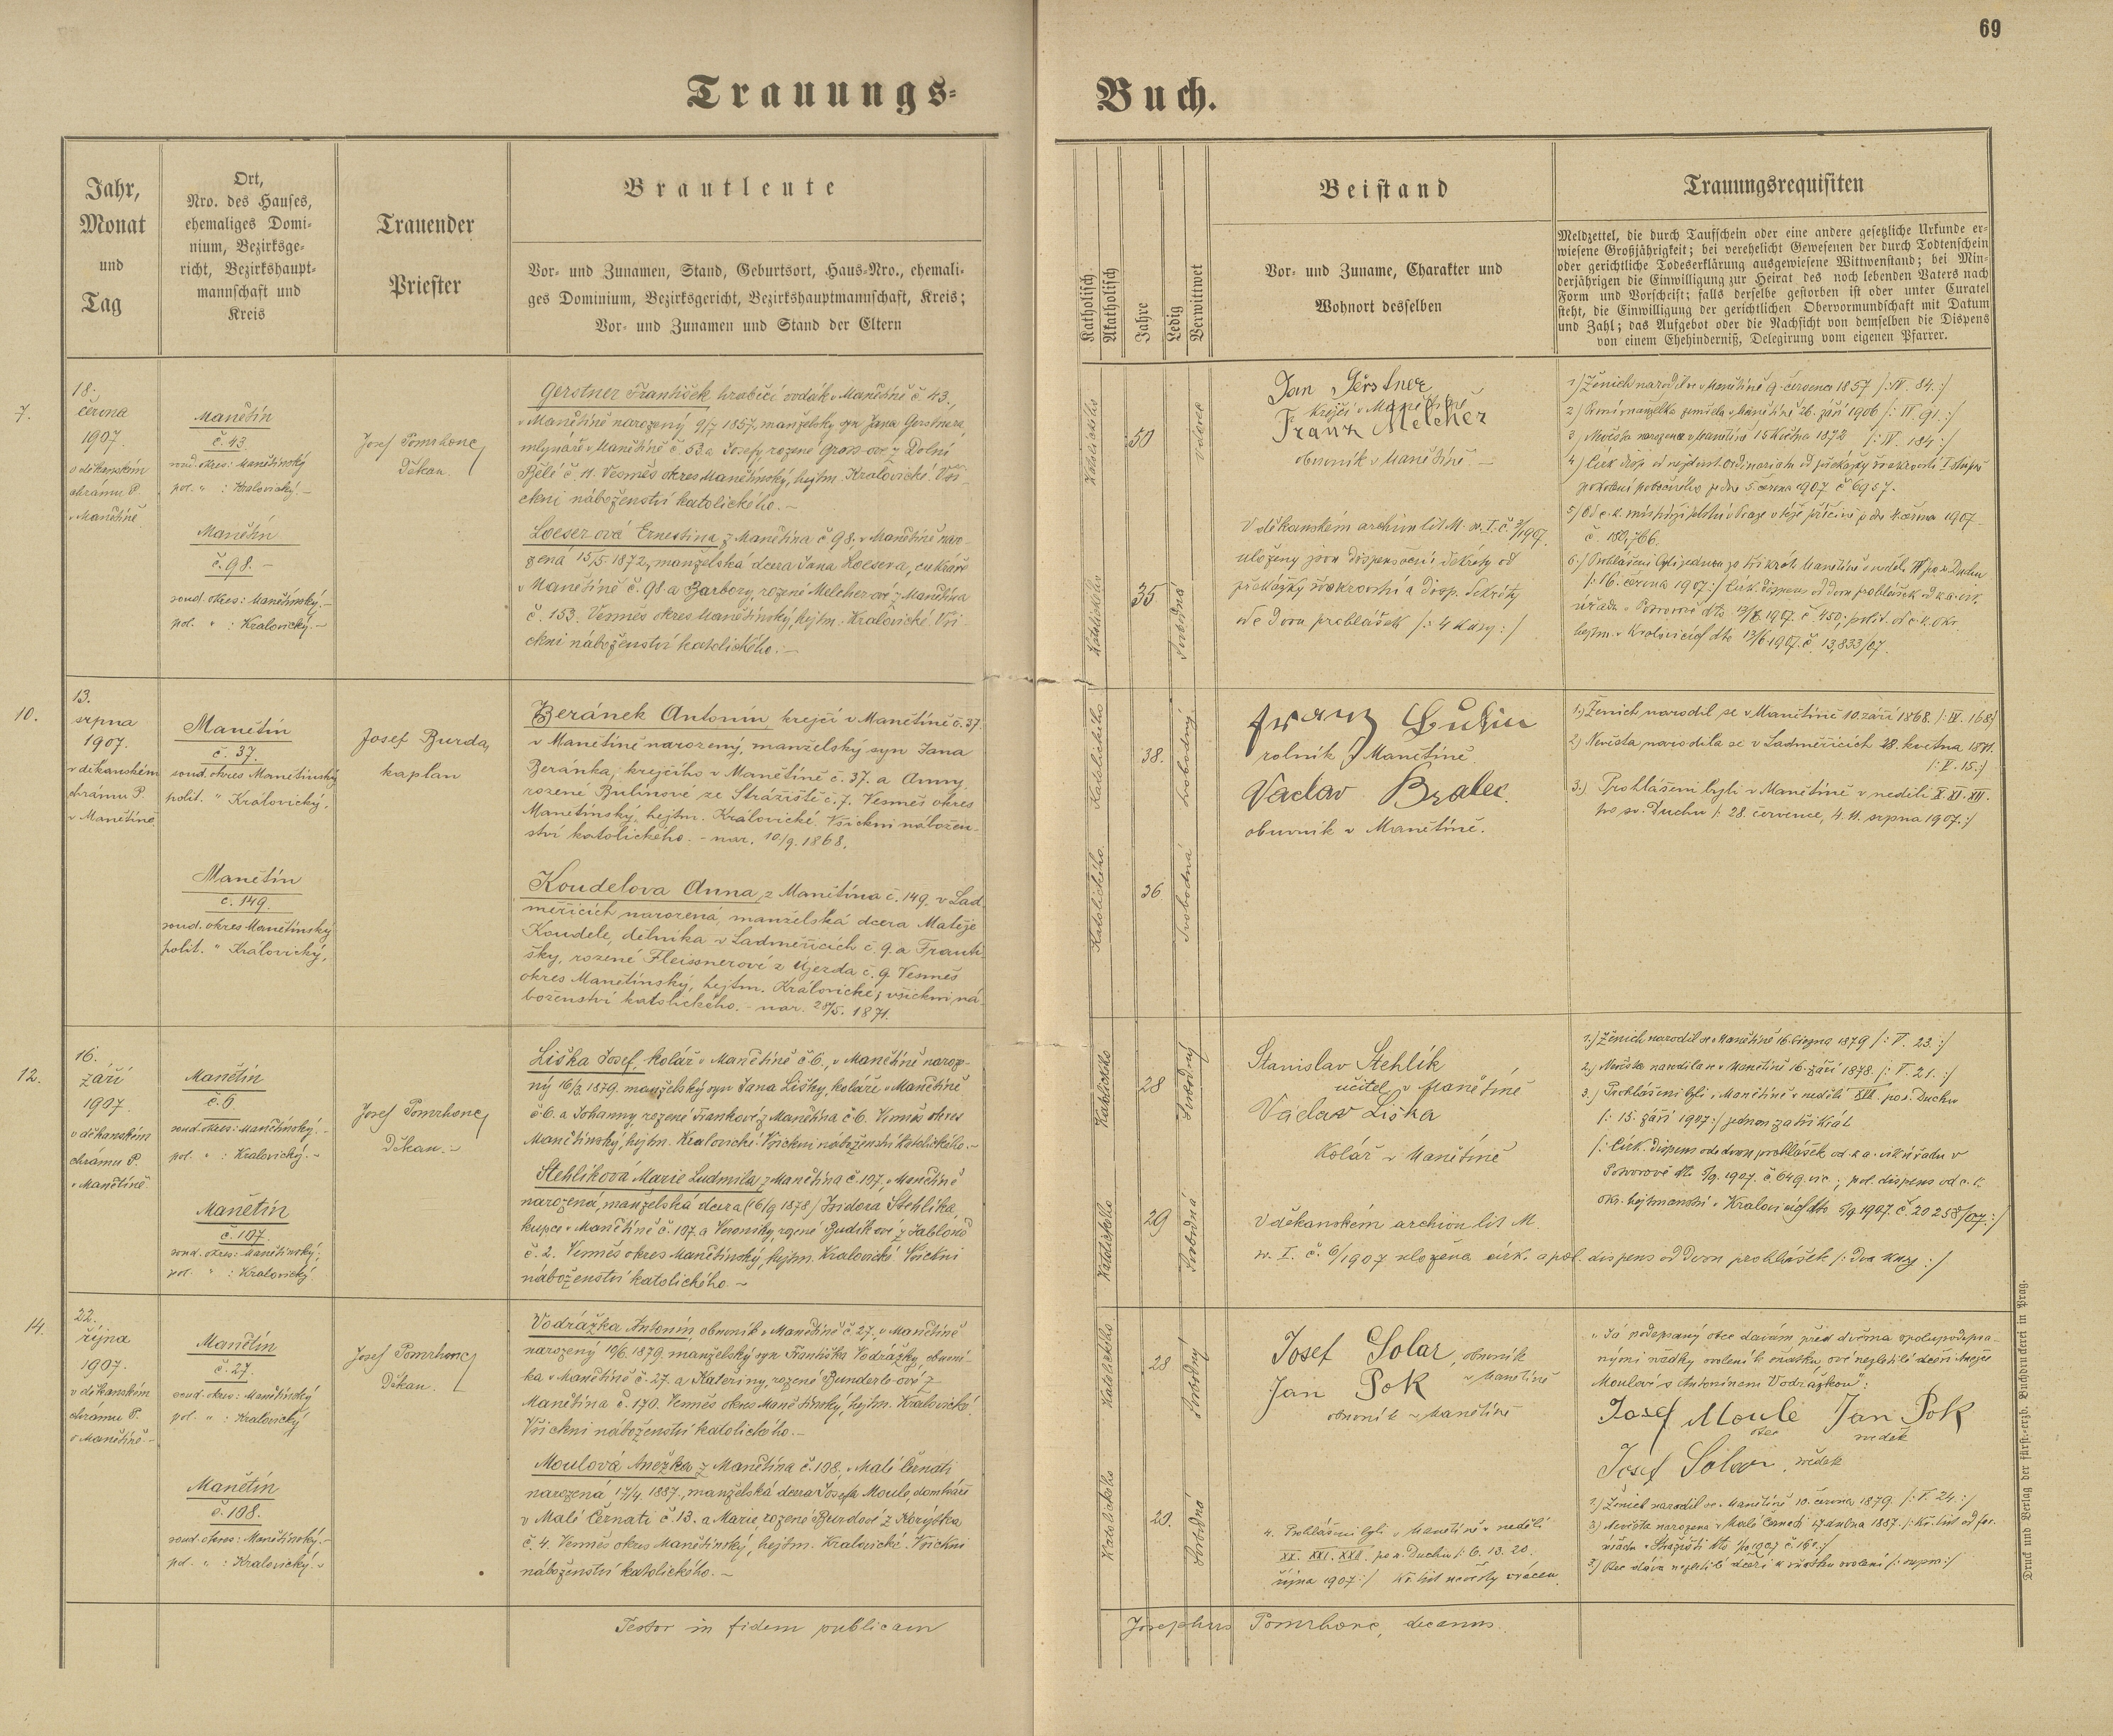 69
Trauungs-
Buch.
Jahr,
Monat
und
Tag
Ort,
Nro. des Hauses,
ehemaliges Domi-
nium, Bezirksge-
richt, Bezirkshaupt-
mannschaft und
Kreis
Trauender
Priester
Brautleute
Vor- und Zunamen, Stand, Geburtsort, Haus-Nro., ehemali-
ges Dominium, Bezirksgericht, Bezirkshauptmannschaft, Kreis;
Vor- und Zunamen und Stand der Eltern
Katholisch
Akatholisch
Jahre
Ledig
Verwittwet
Beistand
Vor- und Zuname, Charakter und
Wohnort desselben
Trauungsrequisiten
Meldzettel, die durch Taufschein oder eine andere gesetzliche Urkunde er-
wiesene Großjährigkeit; bei verehelicht Gewesenen der durch Todtenschein
oder gerichtliche Todeserklärung ausgewiesene Wittwenstand; bei Min-
derjährigen die Einwilligung zur Heirat des noch lebenden Vaters nach
Form und Vorschrift; falls derselbe gestorben ist oder unter Curatel
steht, die Einwilligung der gerichtlichen Obervormundschaft mit Datum
und Zahl; das Aufgebot oder die Nachsicht von demselben die Dispens
von einem Ehehinderniß, Delegirung vom eigenen Pfarrer.
7.
18.
června
1907.
v děkanském
chrámu P.
v Manětíně.
Manětín
č. 43
soud. okres: Manětínský
pol. " : Kralovický.-
Manětín
č. 98. -
soud. okres: Manětínský.-
pol. " : Kralovický.-
Josef Pomrhonc,
Děkan.
Gerstner František hraběcí v Manětíně č 43.,
v Manětíně narozený 9/7 1857, manželský syn Jana Gerstnera
mlynáře v Manětíně č. 53. a Josefy, rozené Gross-ové z Dolní
Bělé č. 11. Vesměs okres Manětínský, hejtm. Kralovické. Vši-
ckni náboženství katolického.-
Loeser ová Ernestina z Manětína č 98., v Manětíně naro-
zená 15/5. 1872, manželská dcera Jana Loesera, cukráře
v Manětíně č. 98 a Barbory, rozené Melcher-ové z Manětína
č. 153. Vesměs okres Manětínský, hejtm. Kralovické. Vši-
ckni náboženství katolického.-
Katolického
50
vdovec
Katolického
35
svobodná
Jan Gerstner
krejčí v Manětíně
Franz Melcher
obuvník v Manětíně.-
V děkanském archivu lit M. sv. I. č 3/1907.
uloženy jsou dispensační dekrety od
překážky švakrovství a disp. dekréty
ode dvou prohlášek /: 4 kusy :/
1) Ženich narodil se v Manětíně 9. července 1857 /: IV. 84. :/
2) První manželka zemřela v Manětíně 26. září 1906 /: IV. 91. :/
3) Nevěsta narozena v Manětíně 15 května 1872 /: IV. 184 :/
4) Církev. disp. od nejdůst. Ordinariatu od překážky švakrovství I stupně
pokolení pobočného je dne 5 června 1907 č 6957.
5) Od c. k. místodržitelství v Praze v téže příčině je dne 4. června 1907
č. 180,766.
/: 16. června 1907 :/
hejtm. v Kralovicích dto 13/6 1907. č. 13,833/07.
10.
13.
srpna
1907.
v děkanském
chrámu P.
v Manětíně
Manětín
č. 37.
soud. okres Manětínský
polit. " Královický.
Manětín
č. 149.
soud. okres Manětínský
polit. " Královický,
Josef Burda,
kaplan
Beránek Antonín, krejčí v Manětíně č. 37.
v Manětíně narozený, manželský syn Jana
Beránka, krejčího v Manětíně č. 37. a Anny,
rozené Bulínové ze Strážiště č. 7. Vesměs okres
Manětínský, hejtm. Kralovické. Všickni nábožen-
ství katolického. - nar. 10/9. 1868.
Koudelova Anna, z Manětína č. 149. v Lad-
měřicích narozená, manželská dcera Matěje
Koudele, dělníka v Ladměřicích č. 9. a Franti-
šky, rozené Fleissnerové z Újezda č. 9. Vesměs
okres Manětínský, hejtm. Královické; všickni ná-
boženství katolického. - nar. 28/5. 1871.
Katolického
38.
svobodný
Katolického
36
Svobodná
rolník v Manětíně.
Václav Bralec.
obuvník v Manětíně.
1.) Ženich narodil se v Manětíně 10. září 1868. /: IV. 168 :/
2) Nevěsta narodila se v Ladměřicích 28. května 1871.
/: V. 15. :/
3.) Prohlášeni byli v Manětíně v neděli X. XI. XII.
po sv. Duchu /: 28. července, 4. 11. srpna 1907. :/
12.
16.
září
1907.
v děkanském
chrámu P.
v Manětíně
Manětín
č. 6.
soud. okres: Manětínský.-
pol. " : Kralovický.-
Manětín
č. 107.
soud. okres: Manětínský;
pol. " : Kralovický
Josef Pomrhonc,
Děkan.-
Liška Josef, kolář v Manětíně č. 6., v Manětíně naroze-
ný 16/3. 1879. manželský syn Jana Lišky, koláře v Manětíně
č. 6. a Johanny, rozené Frankové z Manětína č 6. Vesměs okres
Manětínský, hejtm. Kralovické. Všickni náboženství katolického.-
Stehlíková Marie Ludmila, z Manětína č. 107, v Manětíně
narozená, manželská dcera (16/9 1878) Isidora Stehlíka,
kupce v Manětíně č. 107. a Veroniky, rozené Budík-ové z Jabloně
č. 2. Vesměs okres Manětínský, hejtm. Kralovické. Všickni
náboženství katolického.-
Katolického
28
svobodný
Katolického
29
svobodná
Stanislav Stehlík
učitel v Manětíně
Václav Liška
Kolář v Manětíně
V děkanském archivu lit M.
sv. I. č. 6/1907 uložena círk. a pol. dispens od dvou prohlášek /: dva kusy :/
1.) Ženich narodil se v Manětíně 16 března 1879 /: V. 23. :/
2.) Nevěsta narodila se v Manětíně 16. září 1878. /: V. 21. :/
3.) Prohlášeni byli v Manětíně v neděli XVII. po sv. Duchu
/: 15. září 1907 :/ jednou za třikrát
/: Círk. dispens ode dvou prohlášek od k. a. vik. úřadu v
č 649. vic.; pol. dispens od c. k.
okr. hejtmanství v Kralovicích dto 5/9. 1907. č. 20 258/07. :/
14.
22.
října
1907.
v děkanském
chrámu P.
v Manětíně.-
Manětín
č. 27.
soud. okres: Manětínský
pol. " : Kralovický
Manětín
č. 108.
soud. okres: Manětínský.-
pol. " : Kralovický.-
Josef Pomrhonc,
Děkan.
Vodrážka Antonín, obuvník v Manětíně č. 27., v Manětíně
narozený 10/6. 1879. manželský syn Františka Vodrážky, obuvní-
ka v Manětíně č. 27. a Kateřiny, rozené Bunderle-ové z
Manětína č. 170. Vesměs okres Manětínský, hejtm. Kralovické.
Všickni náboženství katolického.-
Moulová Anežka z Manětína č. 108., v Malé Černati
narozená 17/4. 1887., manželská dcera Josefa Moule, domkáře
v Malé Černati č. 13. a Marie, rozené Burdové z Korýtka
č. 4. Vesměs okres Manětínský, hejtm. Kralovické. Všickni
náboženství katolického.-
Katolického
28
svobodný
Katolického
20.
svobodná
Josef Solar, obuvník
v Manětíně
Jan Pok
obuvník v Manětíně
4. Prohlášeni byli v Manětíně v neděli
XX. XXI. XXII. po sv. Duchu /: 6. 13. 20.
října 1907 :/ Kř. list nevěsty vrácen.
"Já podepsaný otec dávám před dvěma spolupodepsa-
nými svědky svolení k sňatku své nezletilé dceři Anežce
Moulové s Antonínem Vodrážkou":
Josef Moule Jan Pok
otec svědek
Josef Solar, svědek
1.) Ženich narodil se v Manětíně 10. června 1879. /: V. 24. :/
2) Nevěsta narozena v Malé Černati 17 dubna 1887. /: Kř. list od far.
3) Otec dává nezletilé dceři k sňatku svolení /: supra :/
Testor in fidem publicam
Josephus Pomrhonc, decanus.
Druck und Verlag der fürst.-erzb. Buchdruckerei in Prag.